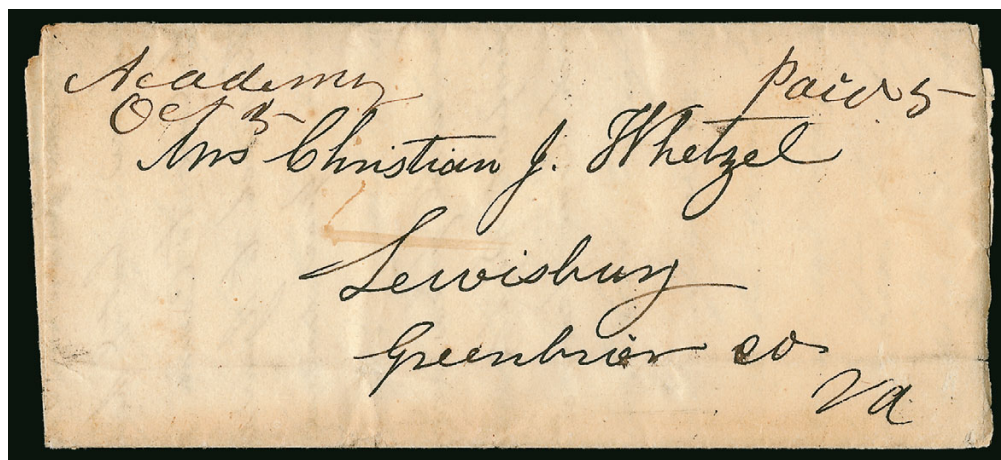 Academy
Paid 5
Oct 3
Mrs Christian J. Whetzel
Lewisburg
Greenbrier co
Va